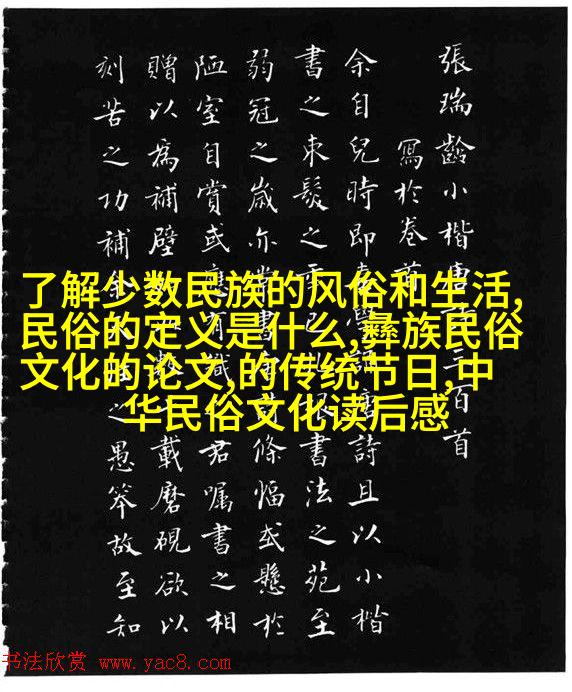 張瑞齡小楷唐三百首
寫於卷
余自兒時即學誦詩且以小楷
書之束髮之書法之苑至
弱冠之歲亦書條幅或懸於
陋室自賞或有識君囑書之相
贈以為補壁載磨硯欲以
刻苦之功補之愚笨故至知
了解少数民族的风俗和生活,
民俗的定义是什么,彝族民俗
文化的论文,的传统节日,中
华民俗文化读后感
书法欣赏 www.yac8.com